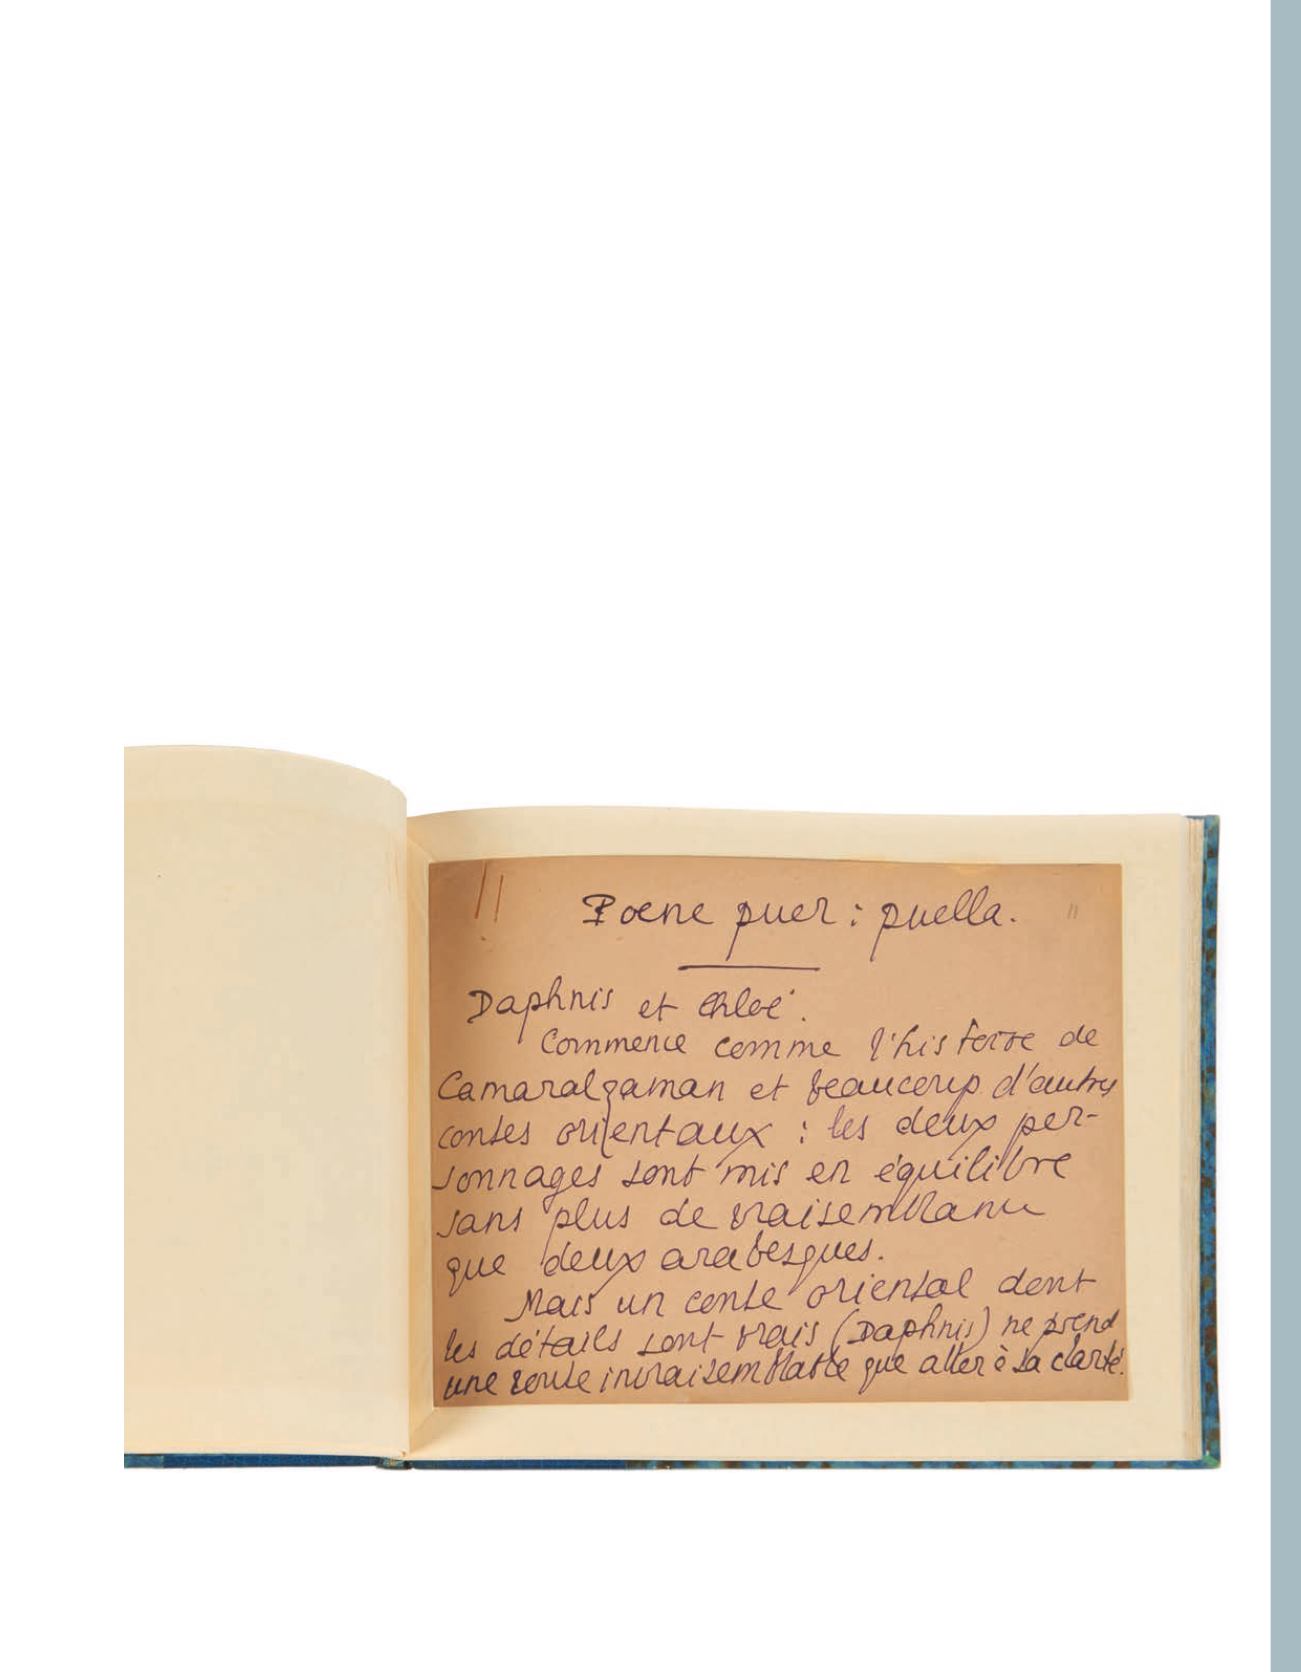 11
Poene puer : puella.
Daphnis et Chloé.
Commence comme l'histoire de
Camaralzaman et beaucoup d'autres
contes orientaux : les deux per-
sonnages sont mis en équilibre
sans plus de vraisemblance
que deux arabesques.
Mais un conte oriental dont
les détails sont vrais (Daphnis) ne prend
une route invraisemblable que aller à la clarté.